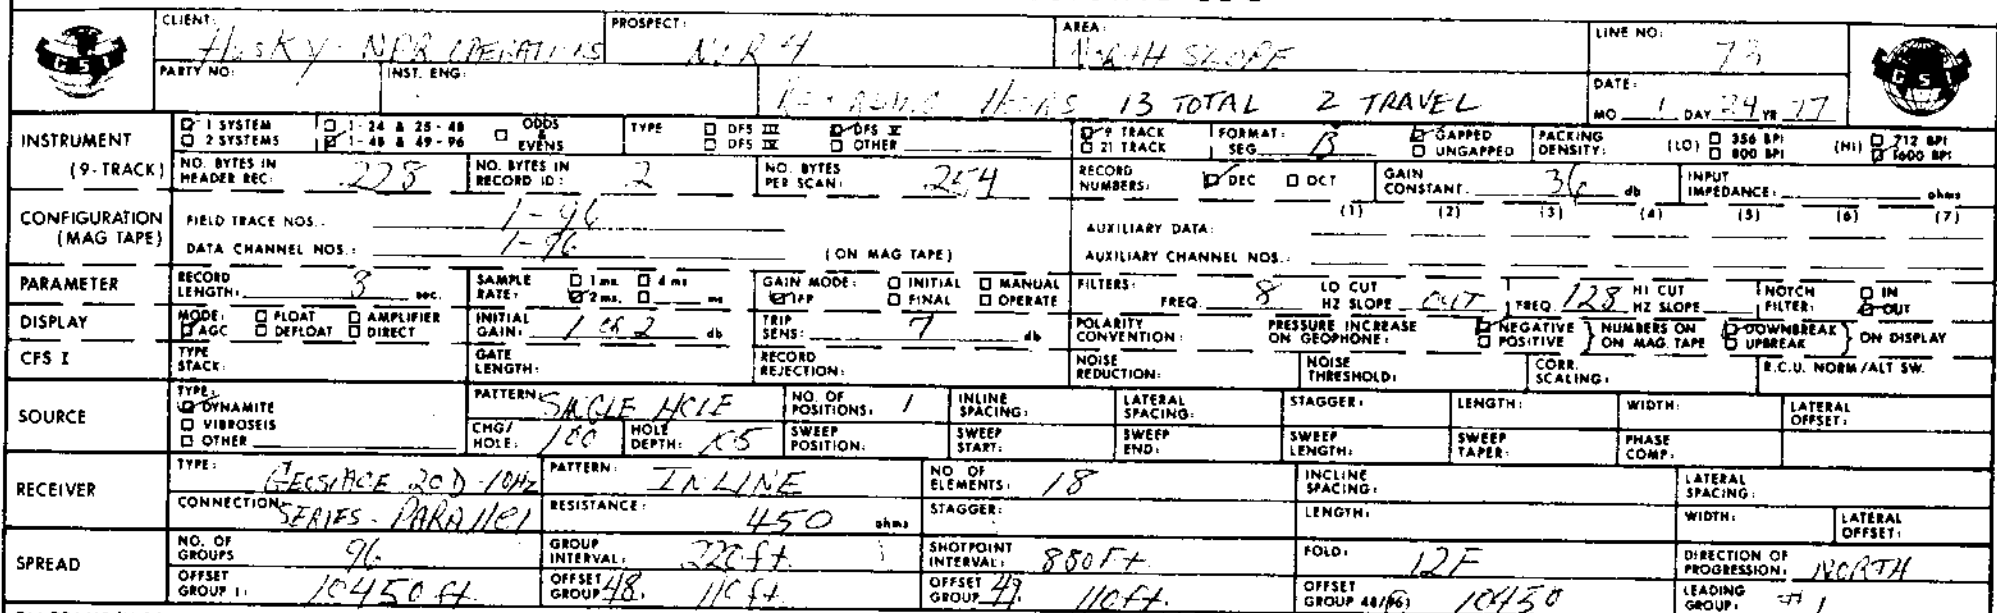 CLIENT: Husky - NPR OPERATIONS PROSPECT: NPR 4 AREA: NORTH SLOPE LINE NO: 73
GSI GSI
PARTY NO: INST. ENG: HOURS 13 TOTAL 2 TRAVEL DATE: MO 1 DAY 24 YR 77
INSTRUMENT 1 SYSTEM 1-24 & 25-48 ODDS & EVENS TYPE DFS III DFS V 9 TRACK FORMAT: SEG B GAPPED PACKING DENSITY: (LO) 356 BPI (HI) 712 BPI
2 SYSTEMS 1-48 & 49-96 DFS IV OTHER 21 TRACK UNGAPPED 800 BPI 1600 BPI
(9-TRACK) NO. BYTES IN HEADER REC: 228 NO. BYTES IN RECORD ID: 2 NO. BYTES PER SCAN: 254 RECORD NUMBERS: DEC OCT GAIN CONSTANT. 36 db INPUT IMPEDANCE: ohms
CONFIGURATION (MAG TAPE) FIELD TRACE NOS.: 1-96 AUXILIARY DATA: (1) (2) (3) (4) (5) (6) (7)
DATA CHANNEL NOS.: 1-96 (ON MAG TAPE) AUXILIARY CHANNEL NOS.:
PARAMETER RECORD LENGTH: 3 sec. SAMPLE RATE: 1 ms. 4 ms 2 ms. ms GAIN MODE: INITIAL MANUAL IFP FINAL OPERATE FILTERS: FREQ. 8 LO CUT HZ SLOPE OUT FREQ. 128 HI CUT HZ SLOPE NOTCH FILTER: IN OUT
DISPLAY MODE: FLOAT AMPLIFIER AGC DEFLOAT DIRECT INITIAL GAIN: 1 of 2 db TRIP SENS: 7 db POLARITY CONVENTION: PRESSURE INCREASE ON GEOPHONE: NEGATIVE POSITIVE NUMBERS ON MAG. TAPE DOWNBREAK UPBREAK ON DISPLAY
CFS I TYPE STACK: GATE LENGTH: RECORD REJECTION: NOISE REDUCTION: NOISE THRESHOLD: CORR. SCALING: R.C.U. NORM/ALT SW.
SOURCE TYPE: DYNAMITE VIBROSEIS OTHER PATTERN: SINGLE HOLE NO. OF POSITIONS: 1 INLINE SPACING: LATERAL SPACING: STAGGER: LENGTH: WIDTH: LATERAL OFFSET:
CHG/HOLE: 100 HOLE DEPTH: SWEEP POSITION: SWEEP START: SWEEP END: SWEEP LENGTH: SWEEP TAPER: PHASE COMP:
RECEIVER TYPE: GEOSPACE 20D-10Hz PATTERN: INLINE NO. OF ELEMENTS: 18 INCLINE SPACING: LATERAL SPACING:
CONNECTION: SERIES-PARAllel RESISTANCE: 450 ohms STAGGER: LENGTH: WIDTH: LATERAL OFFSET:
SPREAD NO. OF GROUPS 96 GROUP INTERVAL: 220 ft. SHOTPOINT INTERVAL: 880 Ft. FOLD: 12F DIRECTION OF PROGRESSION: NORTH
OFFSET GROUP 1: 10450 ft. OFFSET GROUP 48. 110 ft. OFFSET GROUP 49. 110 ft. OFFSET GROUP 48/(96) 10450 LEADING GROUP: #1